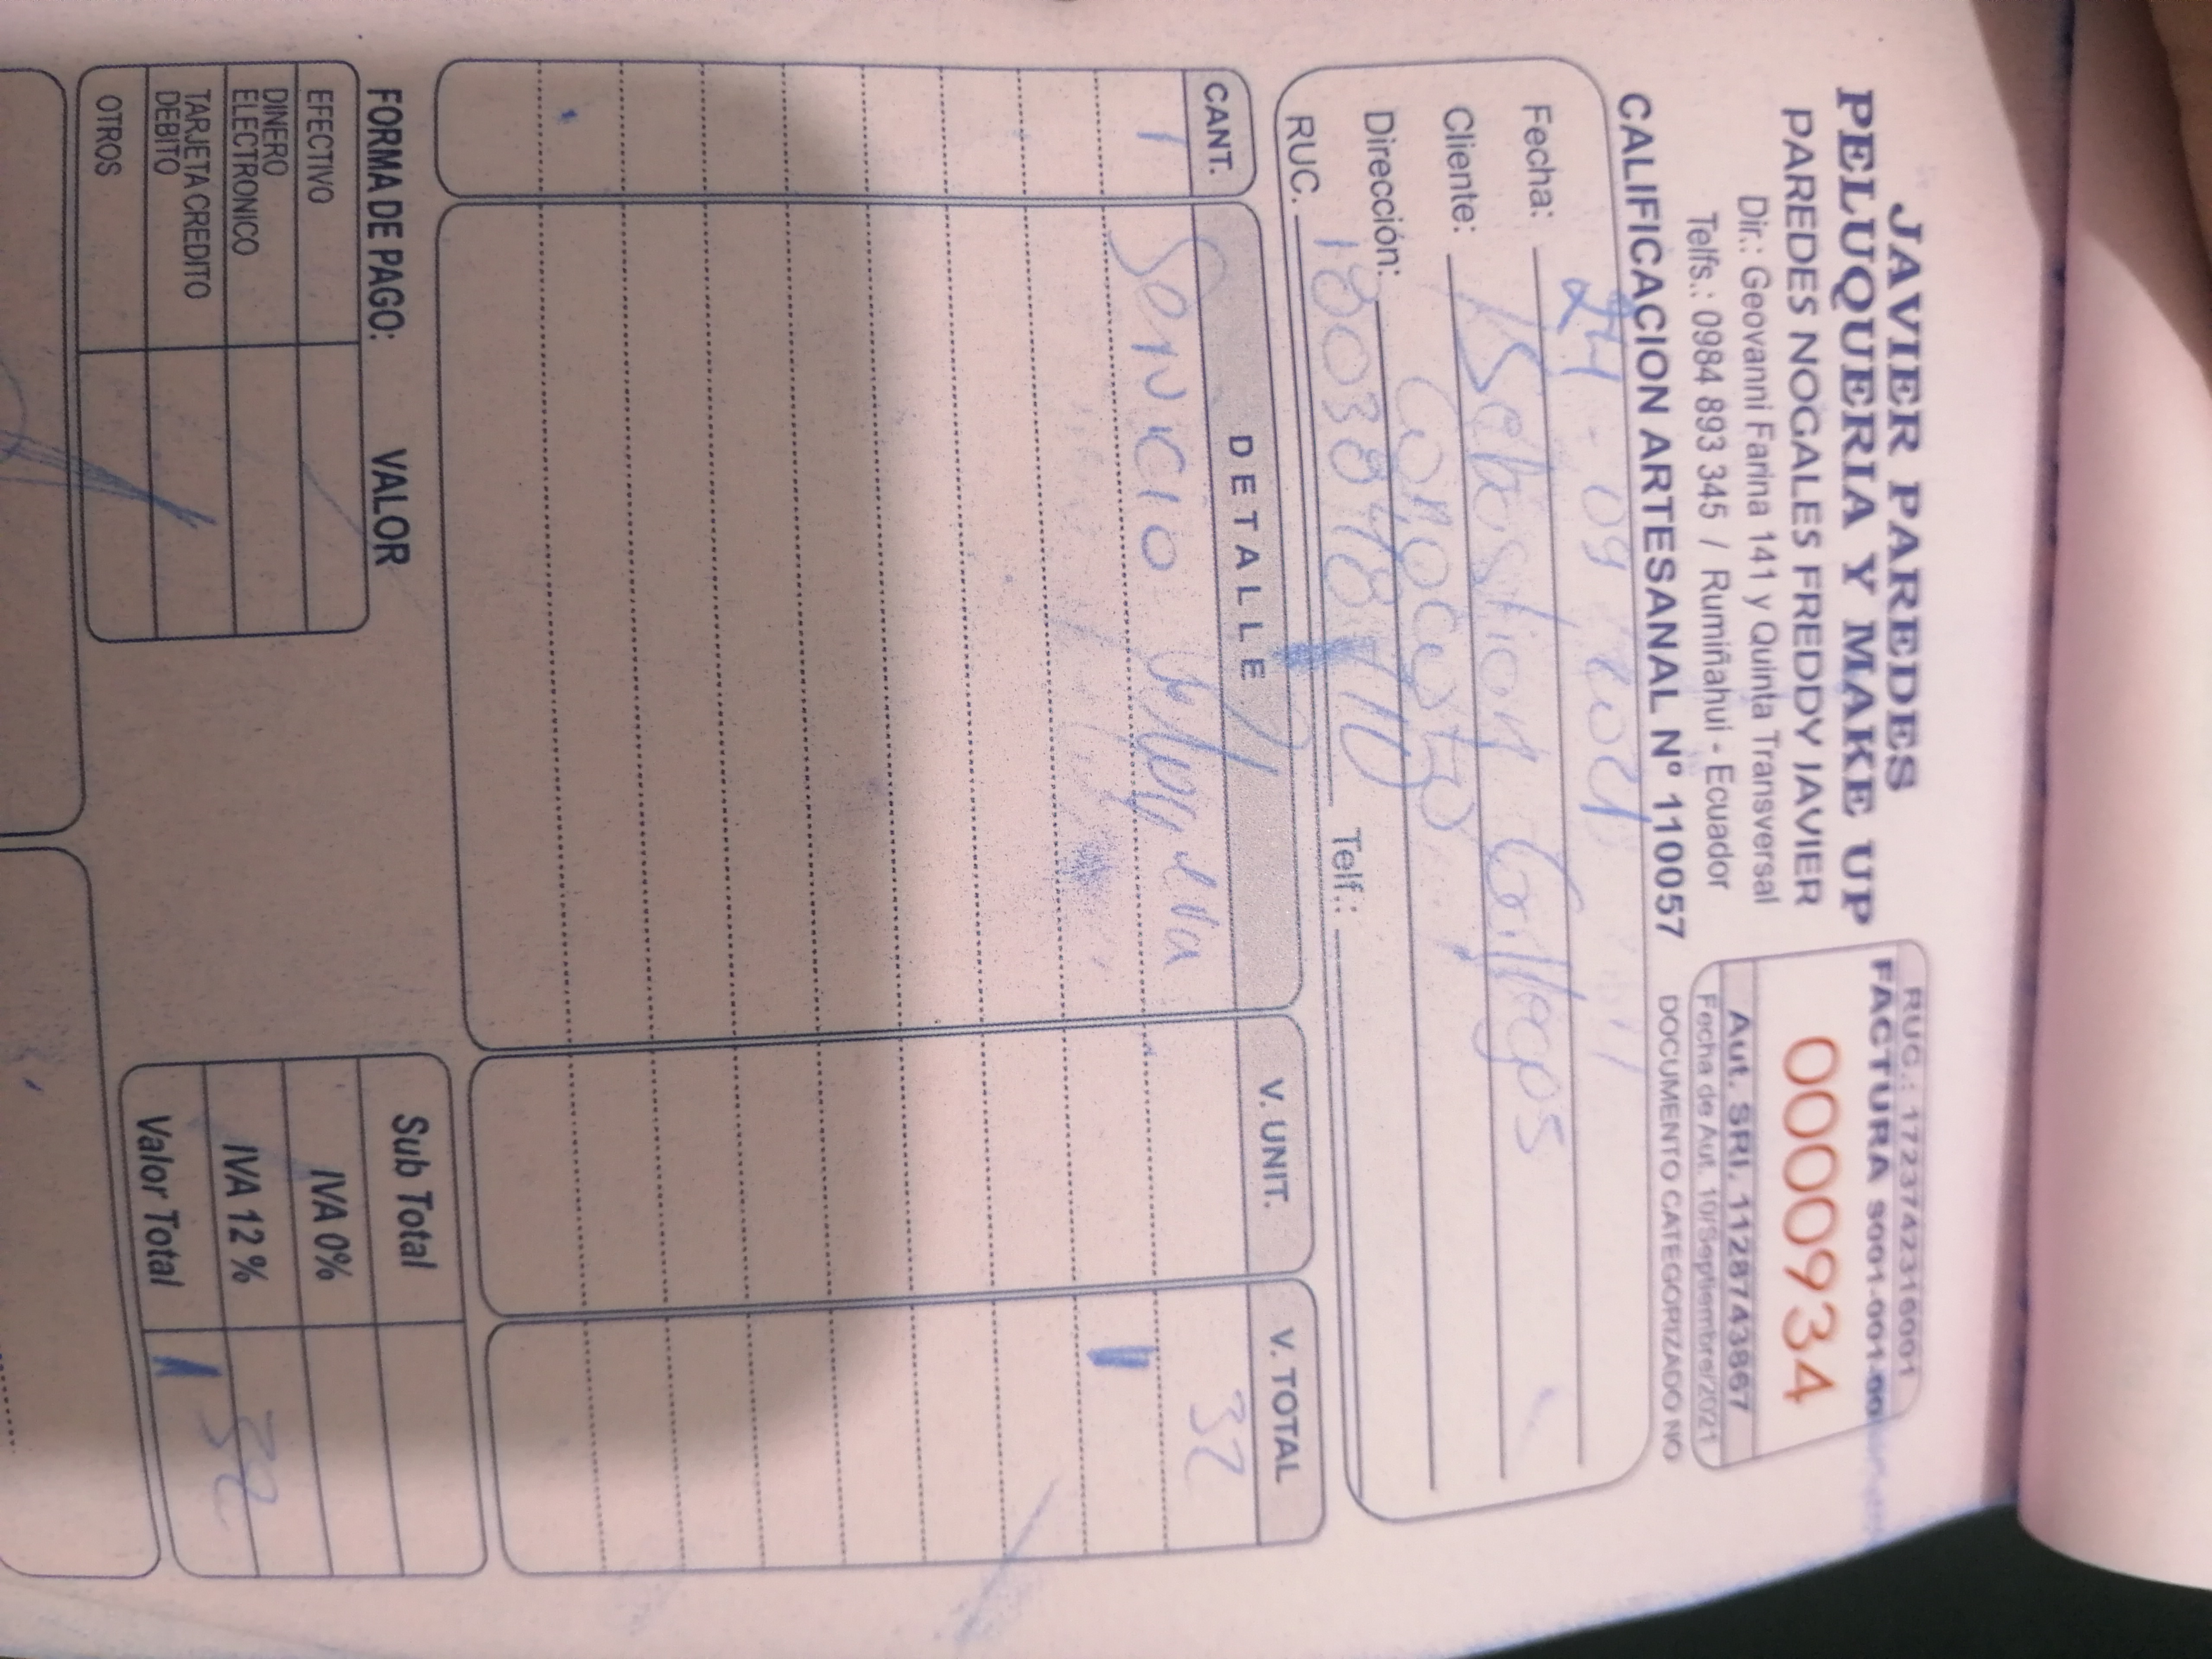 JAVIER PAREDES
PELUQUERIA Y MAKE UP
PAREDES NOGALES FREDDY JAVIER
Dir.: Geovanni Farina 141 y Quinta Transversal
Telfs.: 0984 893 345 / Rumiñahui - Ecuador
CALIFICACION ARTESANAL Nº 110057
RUC.: 1723742316001
FACTURA S001-001-00
0000934
Aut. SRI. 1128743867
Fecha de Aut. 10/Septiembre/2021
DOCUMENTO CATEGORIZADO NO
Fecha: 24 - 09
Cliente: Sebastian Gallegos
Dirección: Conocoto
RUC. Telf.:
CANT. DETALLE V. UNIT. V. TOTAL
1 Servicio 32
FORMA DE PAGO: VALOR
EFECTIVO
DINERO ELECTRONICO
TARJETA CREDITO DEBITO
OTROS
Sub Total
IVA 0%
IVA 12 %
Valor Total 32